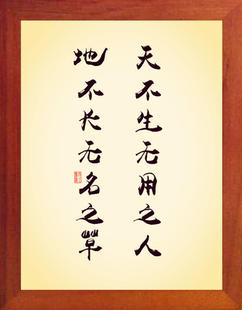 天不生无用之人
地不长无名之草